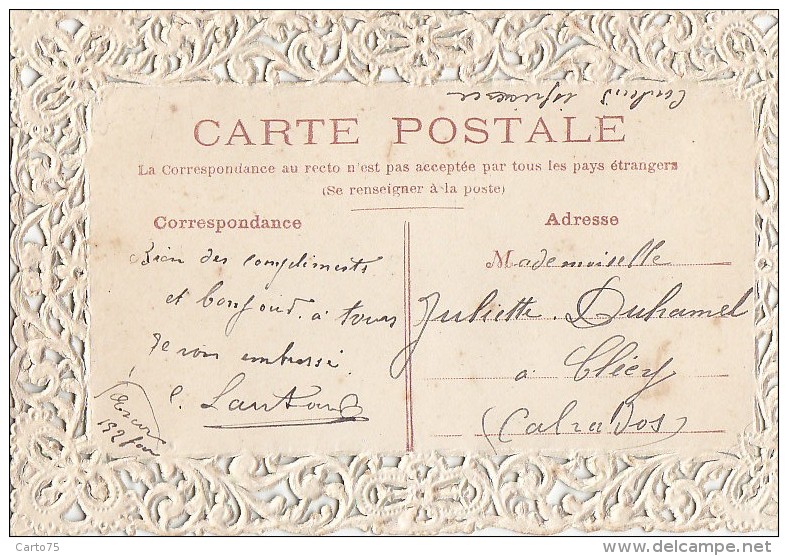 CARTE POSTALE
La Correspondance au recto n'est pas acceptée par tous les pays étrangers
(Se renseigner à la poste)
Correspondance
Bien des compliments
et bonjour à tous
Je vous embrasse
Adresse
Mademoiselle
Juliette Duhamel
a Clécy
(Calvados)
Carto75
delcampe.net